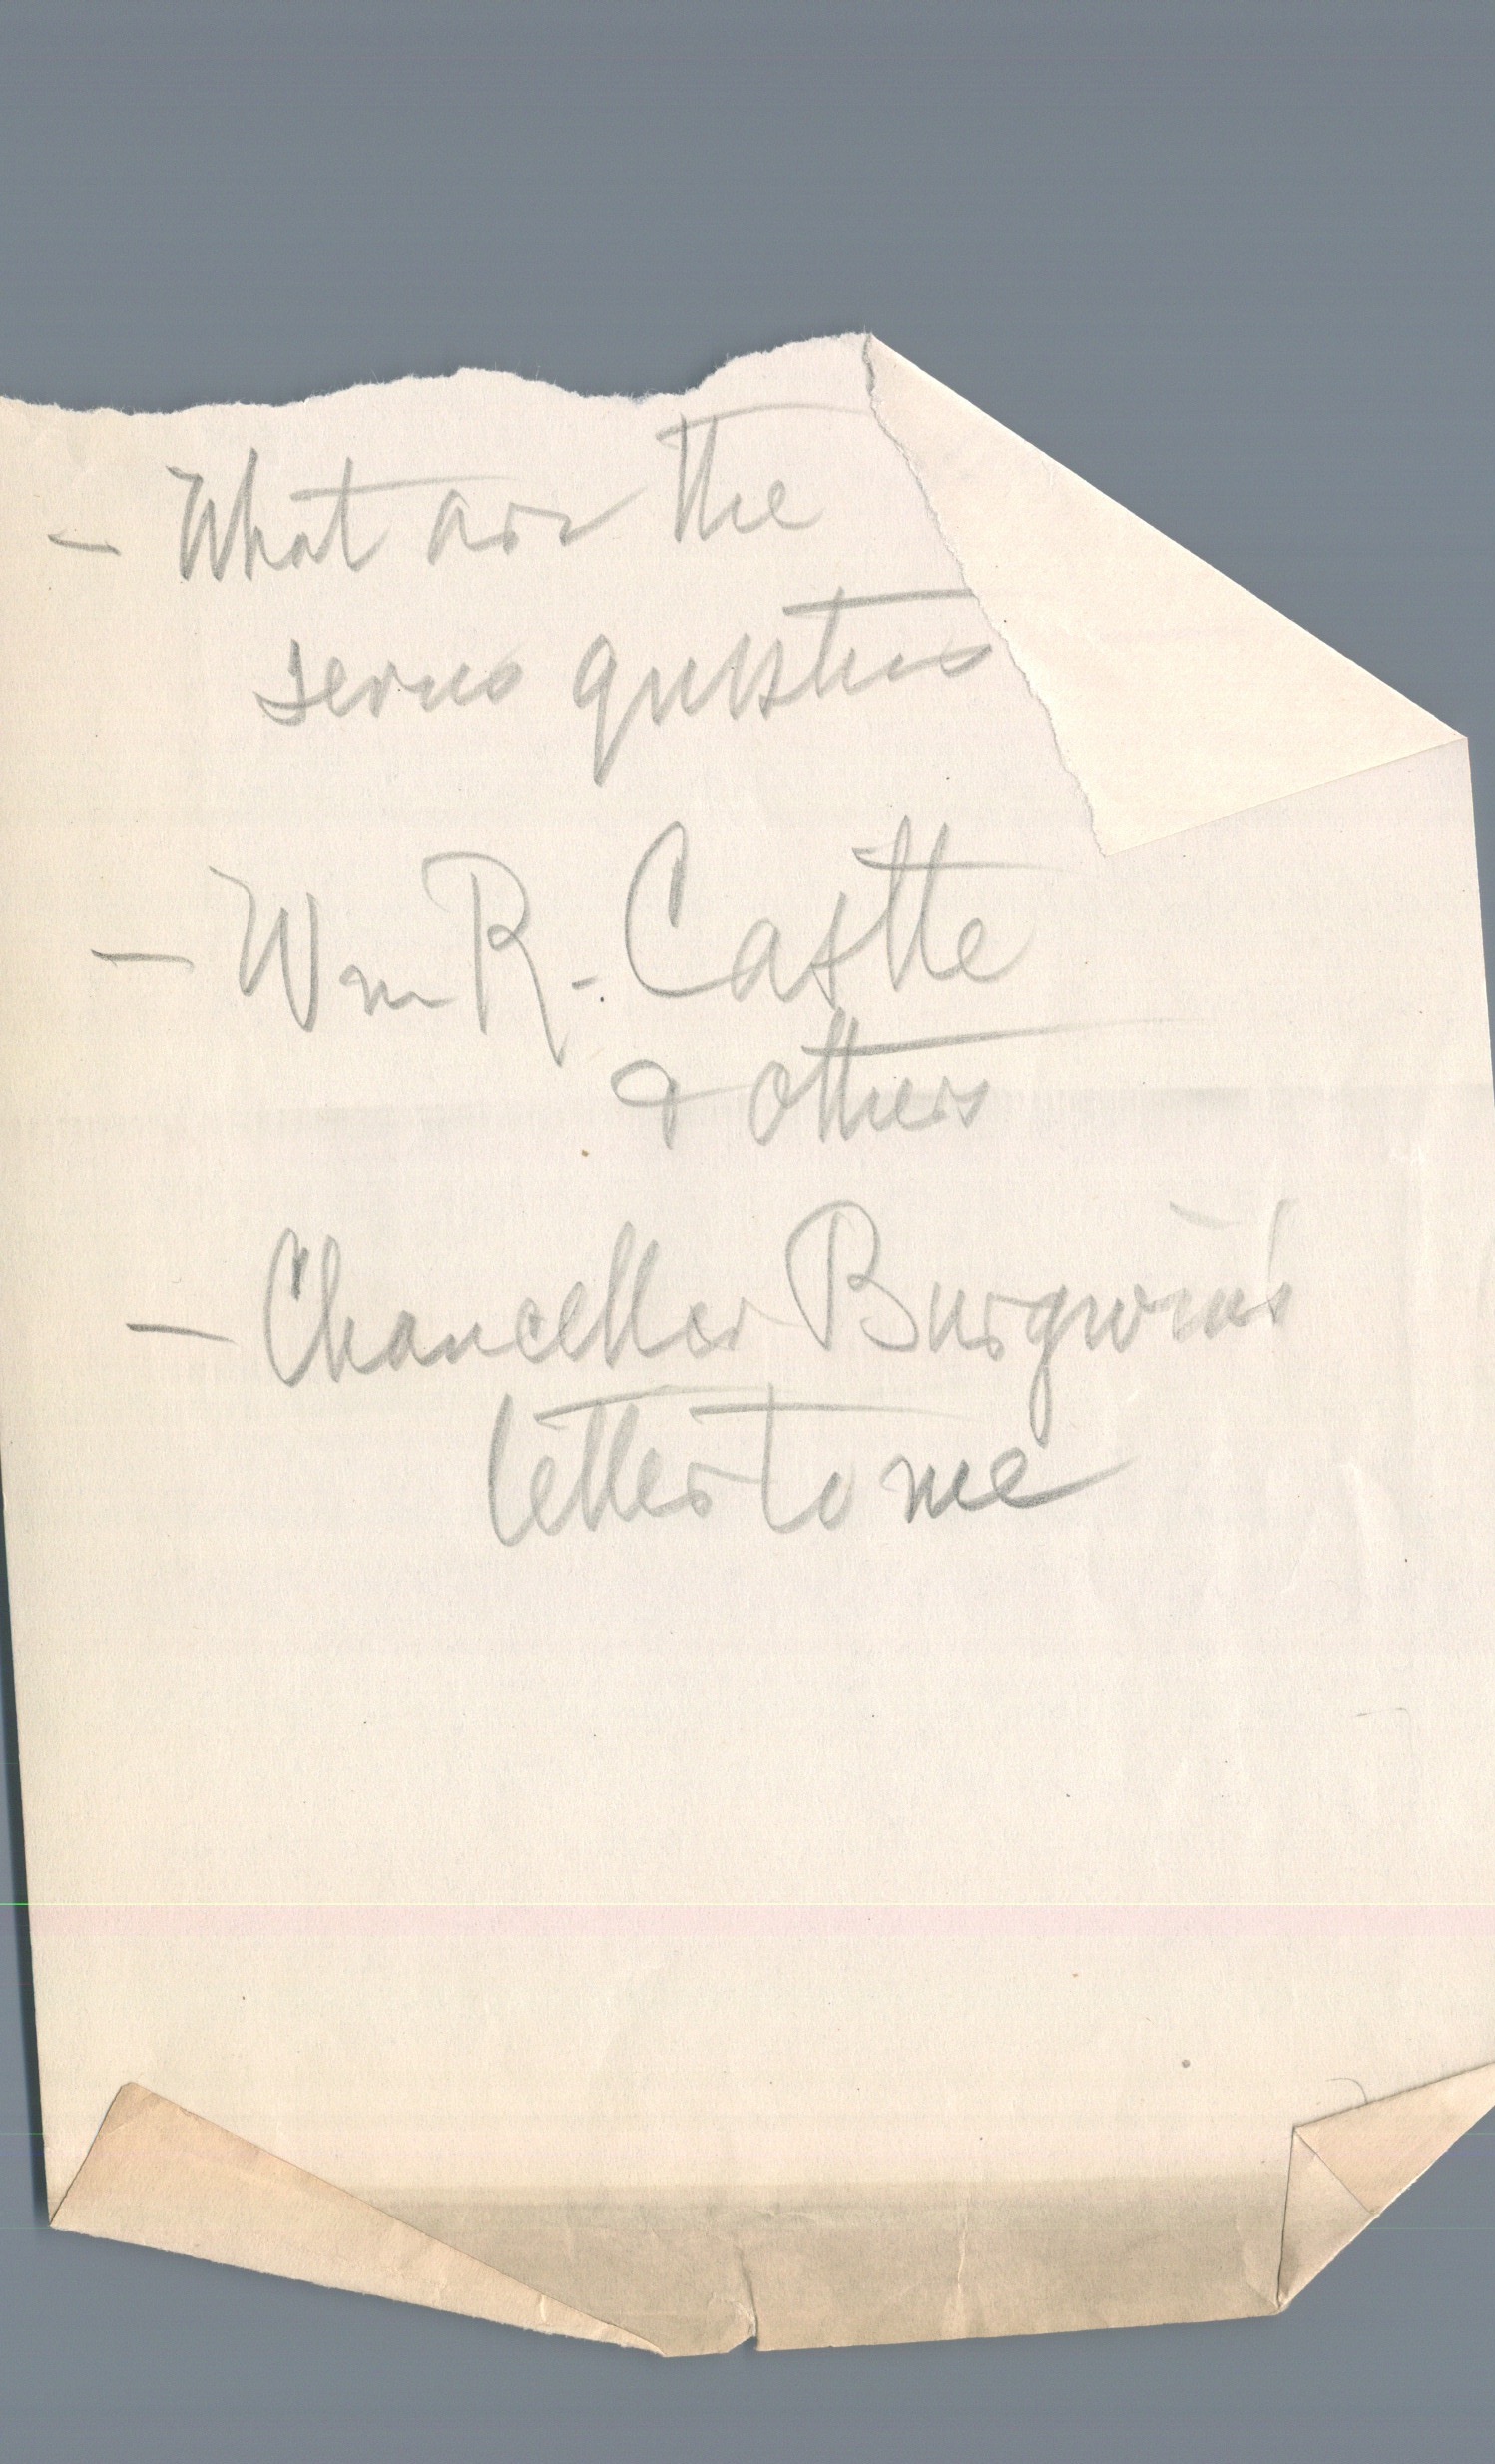 - What are the
serius questius
- Wm R. Castle
& others
- Chancellor Burgwin's
letter to me